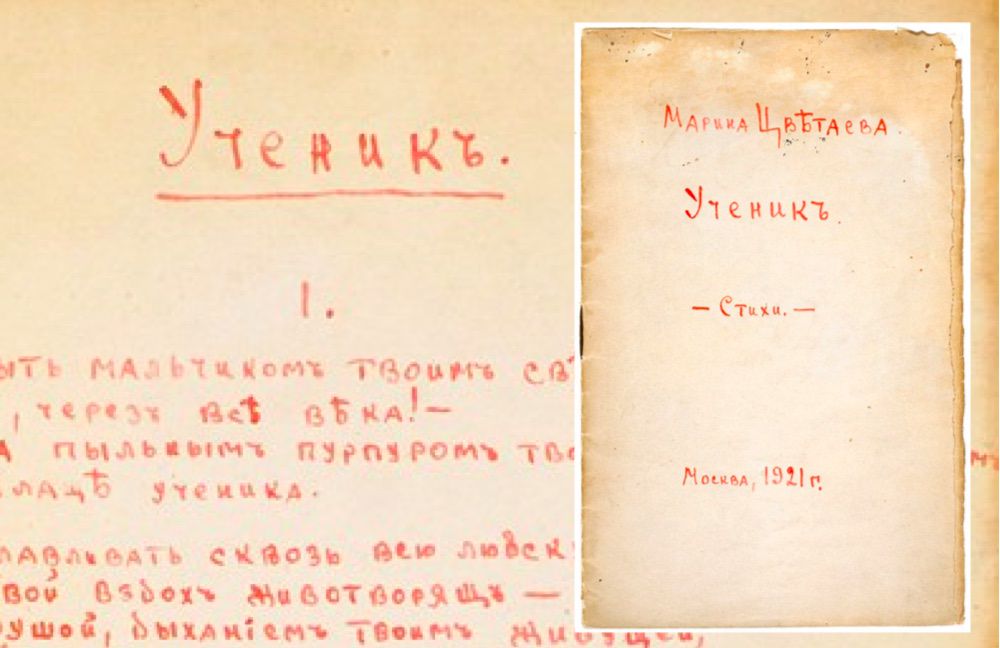 Ученикъ.
1.
ыть мальчикомъ твоимъ свѣ
, черезъ всѣ вѣка!—
пыльнымъ пурпуромъ тво
лащѣ ученика.
лавливать сквозь всю людск
вой вздохъ животворящъ —
ушой, дыханіемъ твоимъ живущей,
Марина Цвѣтаева.
Ученикъ.
— Стихи. —
Москва, 1921 г.